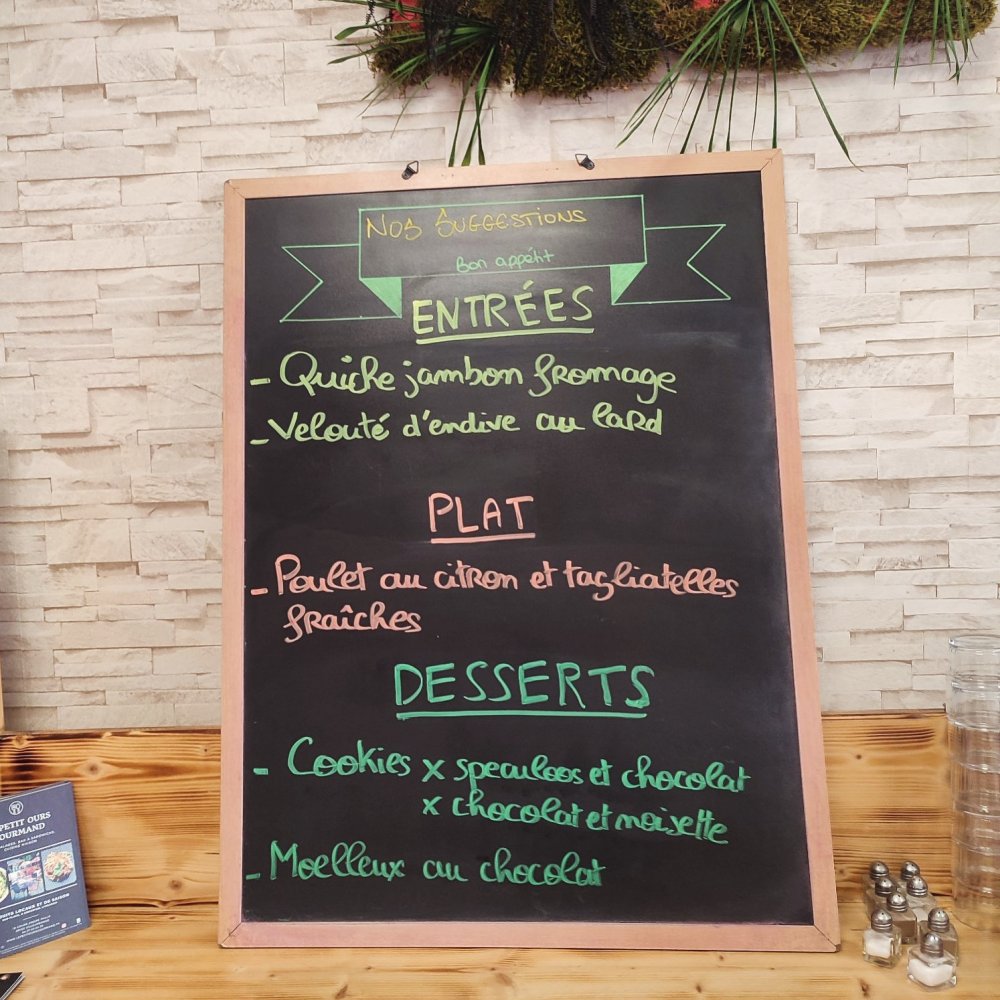 Nos Suggestions
Bon appétit
ENTRÉES
- Quiche jambon fromage
- Velouté d'endive au lard
PLAT
- Poulet au citron et tagliatelles
fraîches
DESSERTS
- Cookies x speculoos et chocolat
x chocolat et noisette
- Moelleux au chocolat
PETIT OURS
GOURMAND